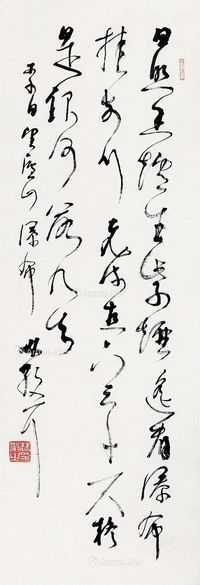 日照香爐生紫煙遙看瀑布
挂前川飛流直下三千尺疑
是銀河落九天
李白望廬山瀑布 散耳